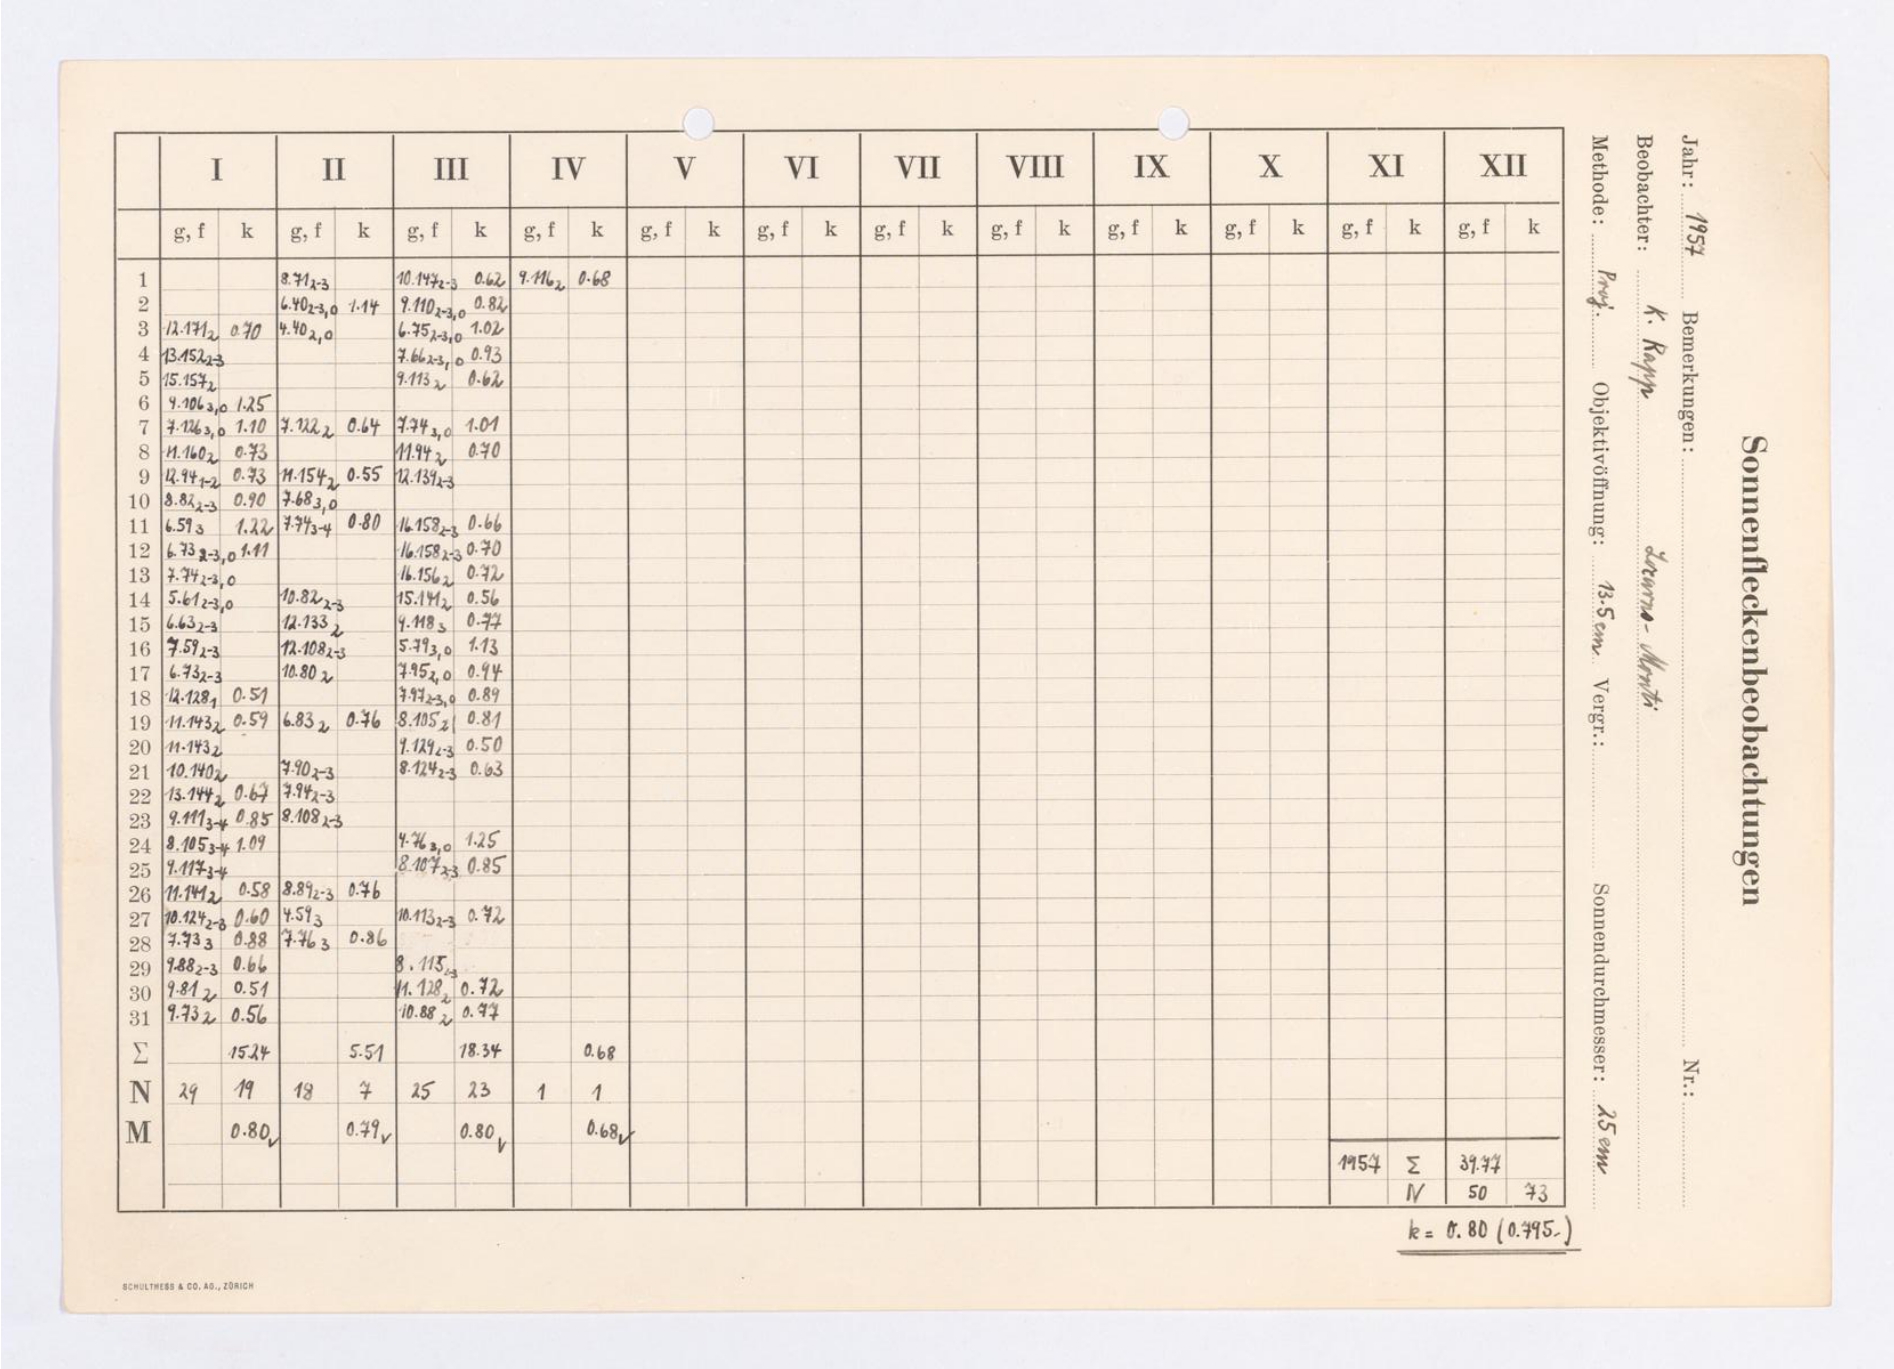 Sonnenfleckenbeobachtungen
Jahr: 1957 Bemerkungen: Nr.:
Beobachter: K. Rapp Locarno-Monti
Methode: Proj. Objektivöffnung: 13.5cm Vergr.: Sonnendurchmesser: 25cm
I II III IV V VI VII VIII IX X XI XII
g, f k g, f k g, f k g, f k g, f k g, f k g, f k g, f k g, f k g, f k g, f k g, f k
1 8.71 2-3 10.147 2-3 0.62 9.116 2 0.68
2 6.40 2-3,0 1.14 9.110 2-3,0 0.82
3 12.171 2 0.70 4.40 2,0 6.75 2-3,0 1.02
4 13.152 2-3 7.66 2-3,0 0.93
5 15.157 2 9.113 2 0.62
6 9.106 3,0 1.25
7 7.126 3,0 1.10 7.122 2 0.64 7.74 3,0 1.01
8 11.160 2 0.73 11.94 2 0.70
9 12.94 1-2 0.73 11.154 2 0.55 12.139 2-3
10 8.82 2-3 0.90 7.68 3,0
11 6.59 3 1.22 7.74 3-4 0.80 16.158 2-3 0.66
12 6.73 2-3,0 1.11 16.158 2-3 0.70
13 7.74 2-3,0 16.156 2 0.72
14 5.61 2-3,0 10.82 2-3 15.141 2 0.56
15 6.63 2-3 12.133 2 9.118 3 0.77
16 7.59 2-3 12.108 2-3 5.79 3,0 1.13
17 6.73 2-3 10.80 2 7.95 2,0 0.94
18 12.128 1 0.51 7.97 2-3,0 0.89
19 11.143 2 0.59 6.83 2 0.76 8.105 2 0.81
20 11.143 2 9.129 2-3 0.50
21 10.140 2 7.90 2-3 8.124 2-3 0.63
22 13.144 2 0.67 7.94 2-3
23 9.111 3-4 0.85 8.108 2-3
24 8.105 3-4 1.09 4.76 3,0 1.25
25 9.117 3-4 8.107 2-3 0.85
26 11.141 2 0.58 8.89 2-3 0.76
27 10.124 2-3 0.60 4.59 3 10.113 2-3 0.72
28 7.73 3 0.88 7.76 3 0.86
29 9.88 2-3 0.66 8.115 2-3
30 9.81 2 0.51 11.128 2 0.72
31 9.73 2 0.56 10.88 2 0.77
Σ 15.24 5.51 18.34 0.68
N 29 19 18 7 25 23 1 1
M 0.80 0.79 0.80 0.68
1957 Σ 39.77
N 50 73
k = 0.80 (0.795-)
SCHULTHESS & CO. AG., ZÜRICH